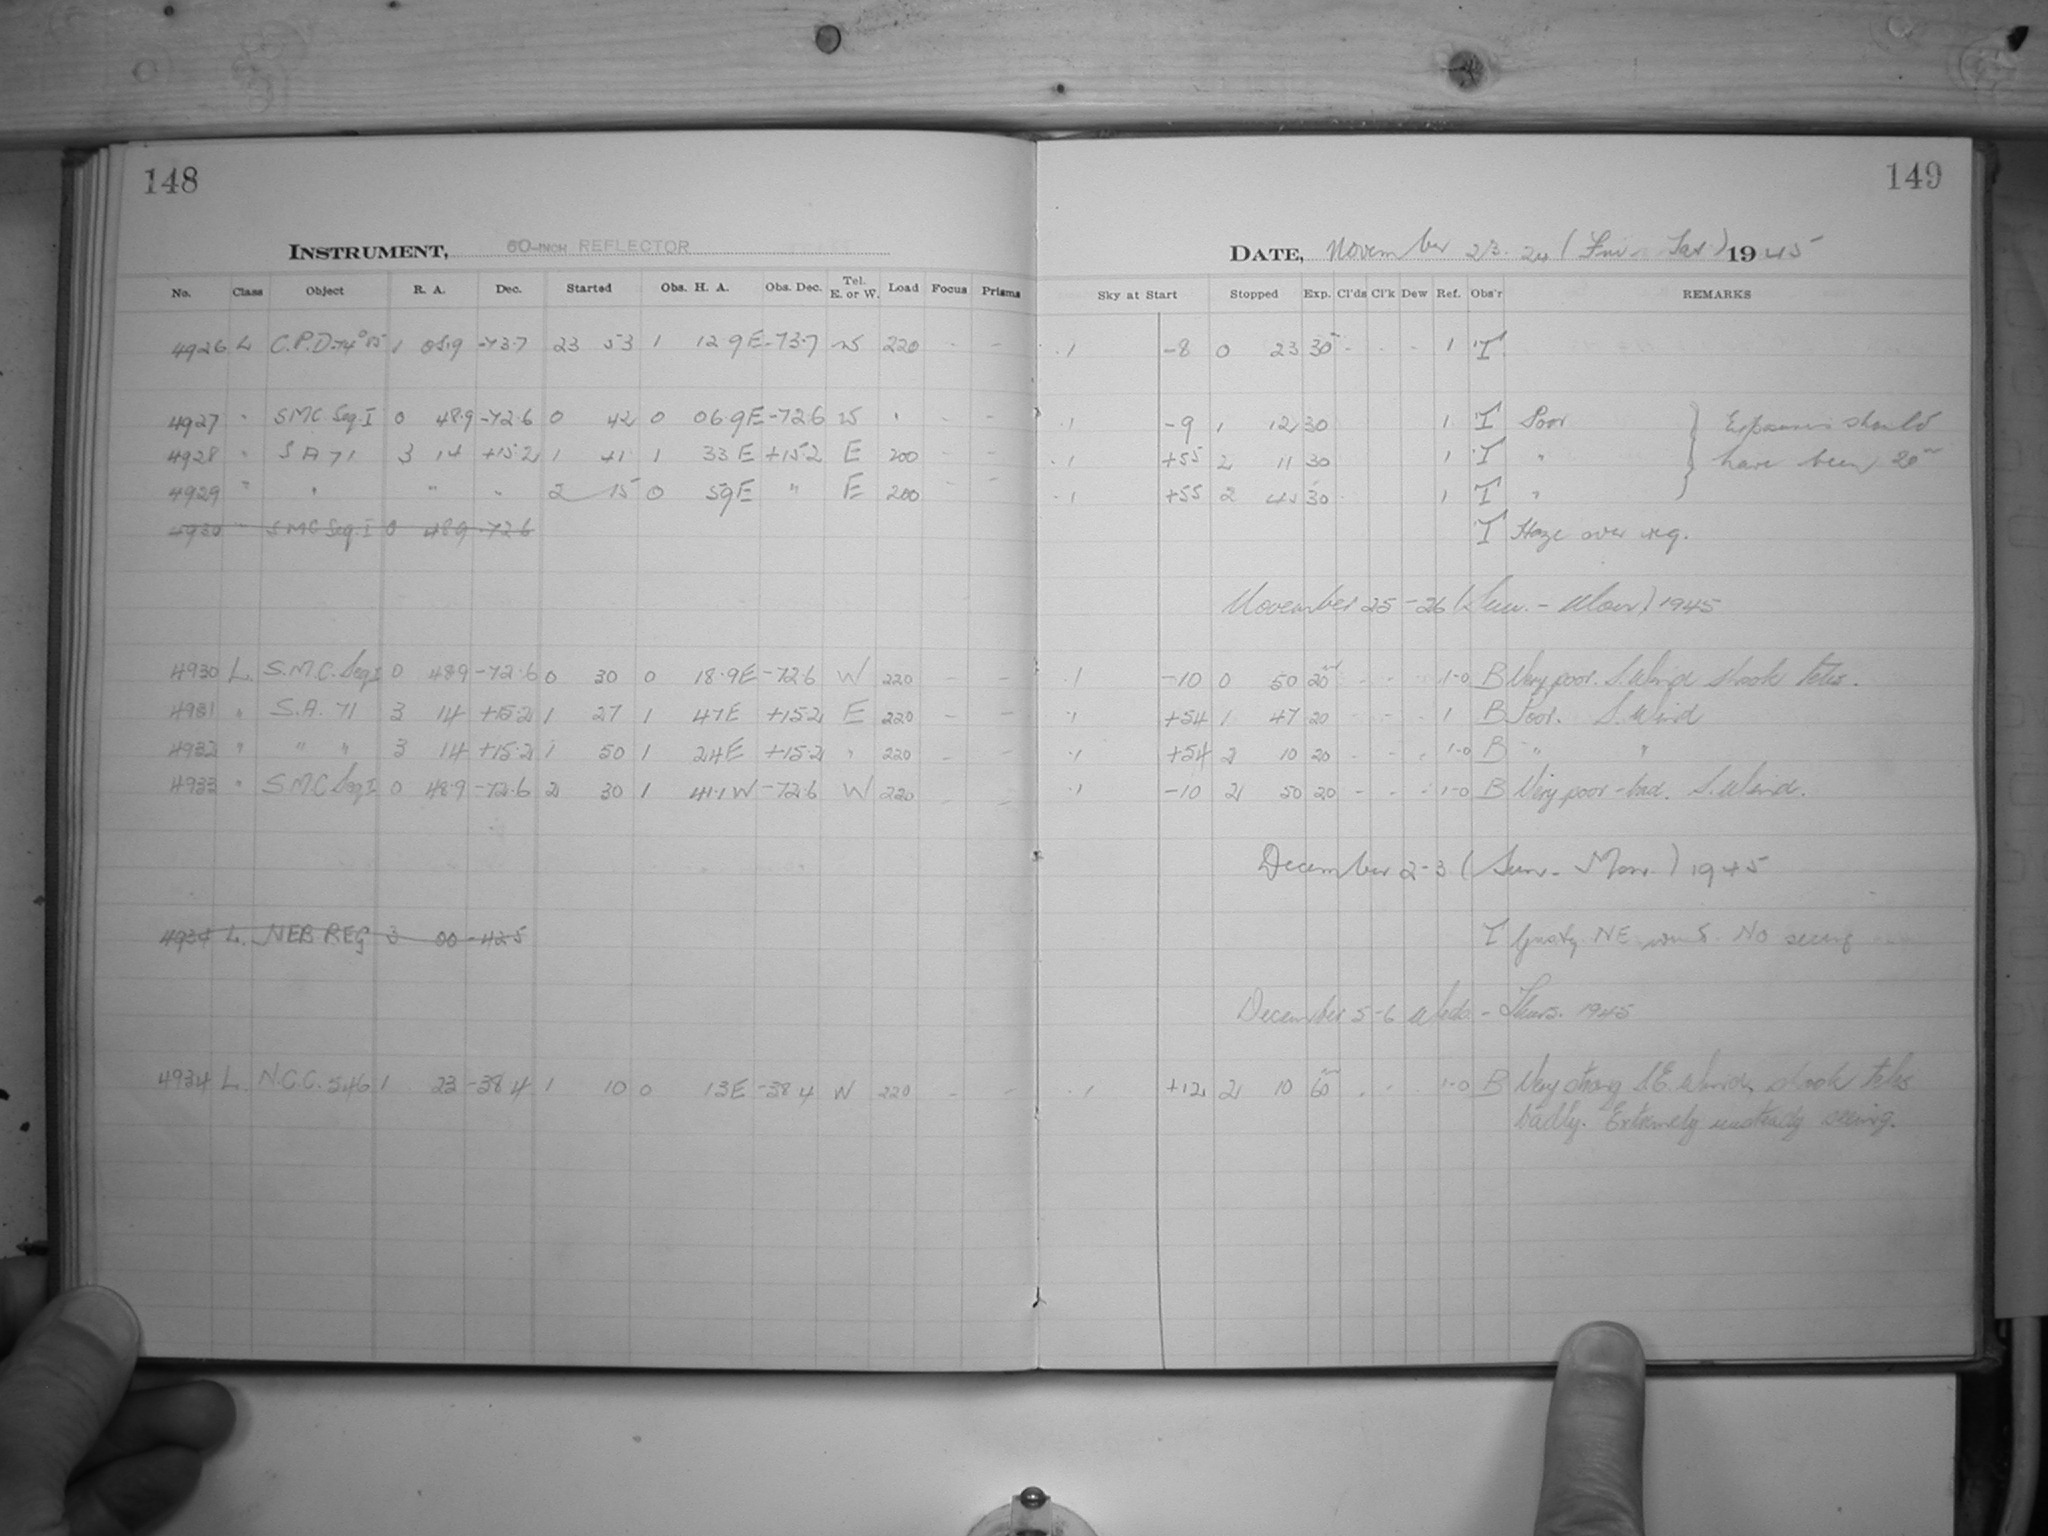 148
149
INSTRUMENT, 60-INCH REFLECTOR
DATE, November 23.24 (Fri - Sat) 1945
No. Class Object R. A. Dec. Started Obs. H. A. Obs. Dec. Tel. E. or W. Load Focus Prisms Sky at Start Stopped Exp. Cl'ds Cl'k Dew Ref. Obs'r REMARKS
4926 L C.P.D-74°85 1 05.9 -73.7 23 53 1 12.9E -73.7 W 220 - - .1 -8 0 23 30 - - - 1 T
4927 " SMC Seq. I 0 48.9 -72.6 0 42 0 06.9E -72.6 W " - - .1 -9 1 12 30 1 T Poor } Exposures should
4928 " S A 71 3 14 +15.2 1 41 1 33E +15.2 E 200 - - .1 +55 2 11 30 1 T " have been 20m
4929 " " " " 2 15 0 59E " E 200 - - .1 +55 2 45 30 1 T "
4930 " SMC Seq. I 0 48.9 -72.6 T Haze over reg.
November 25-26 (Sun. - Mon.) 1945
4930 L. S.M.C. Seq I 0 48.9 -72.6 0 30 0 18.9E -72.6 W 220 - - .1 -10 0 50 20m - - - 1-0 B Very poor. S. Wind shook teles.
4931 " S.A. 71 3 14 +15.2 1 27 1 47E +15.2 E 220 - - .1 +54 1 47 20 - - - 1 B Poor. S. Wind
4932 " " " 3 14 +15.2 1 50 1 24E +15.2 " 220 - - .1 +54 2 10 20 - - - 1-0 B " "
4933 " S.M.C Seq I 0 48.9 -72.6 2 30 1 41.1W -72.6 W 220 - - .1 -10 2 50 20 - - - 1-0 B Very poor - bad. S. Wind.
December 2-3 (Sun. - Mon.) 1945
4934 L. NEB REG 3 00 -42.5 T Gusty NE wind. No seeing
December 5-6 Weds. - Thurs. 1945
4934 L. N.G.C. 546 1 23 -38.4 1 10 0 13E -38.4 W 220 - - .1 +12 2 10 60m - - - 1-0 B Very strong S.E. Wind, shook teles
badly. Extremely unsteady seeing.